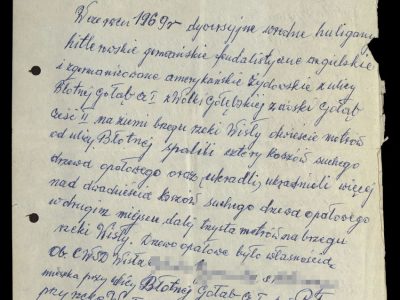 Wrzesień 1969r dywersyjne wrodne huligany
hitlerowskie germańskie feudalistyczne angielskie
i zgermanizowane amerykańskie żydowskie z ulicy
Błotnej Gołąb cz I z Wólki Gołębskiej zaś Gołąb
część II na ziemi brzegu rzeki Wisły dwieście metrów
od ulicy Błotnej spalili cztery koszów suchego
drzewa opałowego oraz ukradli, ukraśnieli więcej
nad dwadzieścia koszów suchego drzewa opałowego
w drugim miejscu dalej trzysta metrów na brzegu
rzeki Wisły. Drzewo opałowe było własnością
Ob.
mieszka przy ulicy Błotnej Gołąb
przy